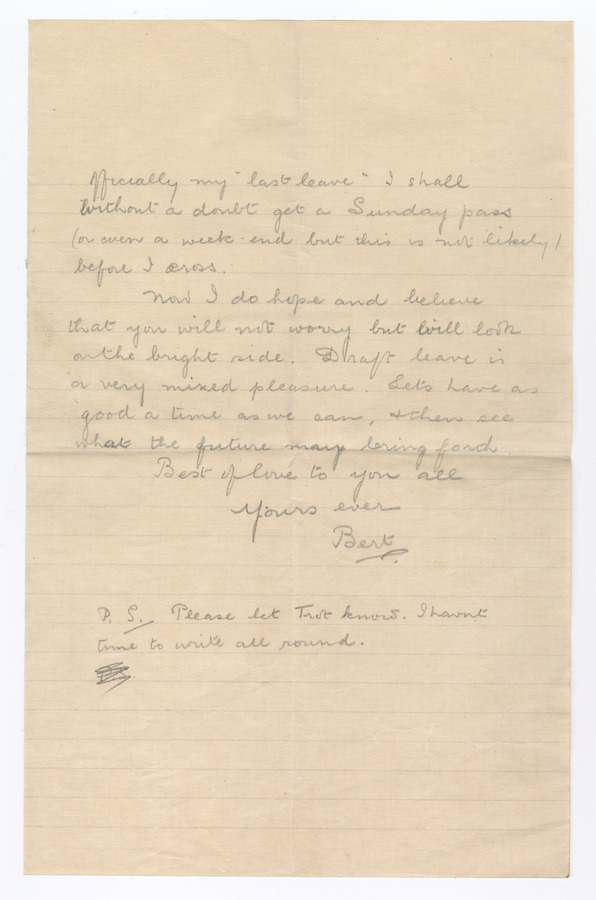 officially my "last leave" I shall
without a doubt get a Sunday pass
(or even a week-end but this is not likely)
before I cross.
Now I do hope and believe
that you will not worry but will look
on the bright side. Draft leave is
a very mixed pleasure. Let's have as
good a time as we can, & then see
what the future may bring forth.
Best of love to you all
Yours ever
Bert.
P.S. Please let Trot know. I havn't
time to write all round.